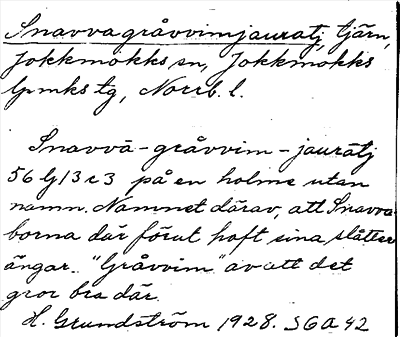 Snavvagråvvimjauratj, tjärn,
Jokkmokks sn, Jokkmokks
lpmks tg, Norrb. l.
Snavvā-gråvvim-jaurātj
56 lg 13 c 3 på en holme utan
namn. Namnet därav, att Snavva
borna där förut haft sina slåtter
ängar. "Gråvvim" av att det
gror bra där.
H. Grundström 1928. S6A42